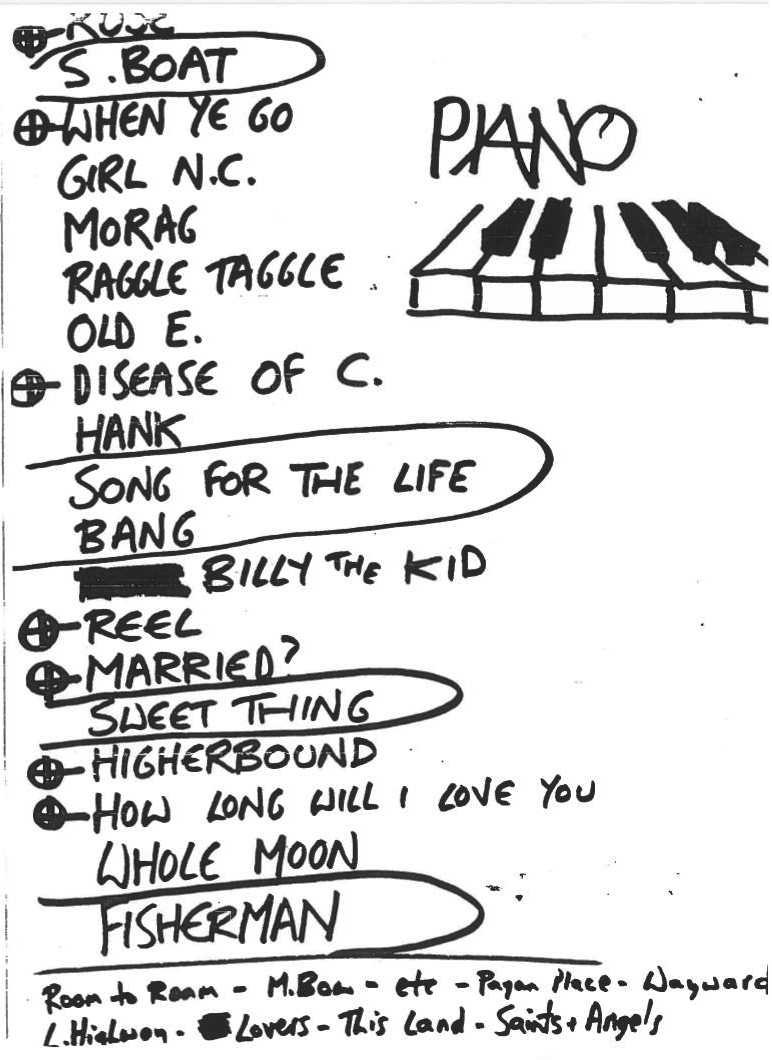 ROSE
S.BOAT
WHEN YE GO
PIANO
GIRL N.C.
MORAG
RAGGLE TAGGLE
OLD E.
DISEASE OF C.
HANK
SONG FOR THE LIFE
BANG
BILLY THE KID
REEL
MARRIED?
SWEET THING
HIGHERBOUND
HOW LONG WILL I LOVE YOU
WHOLE MOON
FISHERMAN
Room to Roam - M.Bow - etc - Pagan Place - Wayward
L. - Lovers - This Land - Saints + Angels